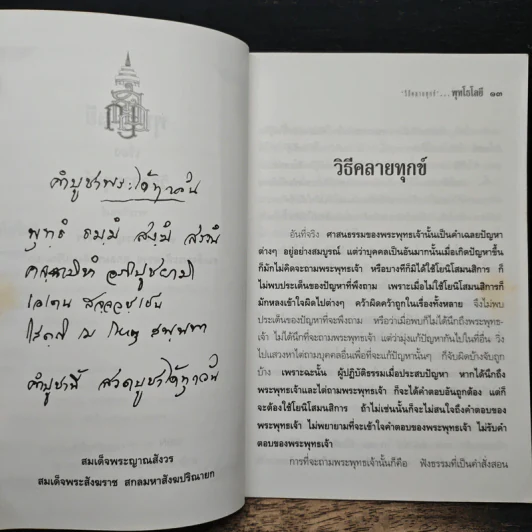 คำบูชาพระได้ทุกวัน
พุทฺธํ ธมฺมํ สงฺฆํ สรณํ
คจฺฉามิหํ อภิปูชยามิ
เอเตน สจฺจวชฺเชน
โสตฺถิ เม โหตุ สพฺพทา
คำบูชานี้ สวดบูชาได้ทุกวัน
สมเด็จพระญาณสังวร
สมเด็จพระสังฆราช สกลมหาสังฆปริณายก
"วิธีคลายทุกข์" ... พุทโธโลยี ๑๓
วิธีคลายทุกข์
อันที่จริง ศาสนธรรมของพระพุทธเจ้านั้นเป็นคำเฉลยปัญหา
ต่างๆ อยู่อย่างสมบูรณ์ แต่ว่าบุคคลเป็นอันมากนั้นเมื่อเกิดปัญหาขึ้น
ก็มักไม่คิดจะถามพระพุทธเจ้า หรือบางทีก็มิได้ใช้โยนิโสมนสิการ ก็
ไม่พบประเด็นของปัญหาที่พึงถาม เพราะเมื่อไม่ใช้โยนิโสมนสิการก็
มักหลงเข้าใจผิดไปต่างๆ คว้าผิดคว้าถูกในเรื่องทั้งหลาย จึงไม่พบ
ประเด็นของปัญหาที่จะพึงถาม หรือว่าเมื่อพบก็ไม่ได้นึกถึงพระพุทธ-
เจ้า ไม่ได้นึกที่จะถามพระพุทธเจ้า แต่ว่ามุ่งแก้ปัญหากันไปในที่อื่น วิ่ง
ไปแสวงหาไต่ถามบุคคลอื่นเพื่อที่จะแก้ปัญหานั้นๆ ก็จับผิดบ้างจับถูก
บ้าง เพราะฉะนั้น ผู้ปฏิบัติธรรมเมื่อประสบปัญหา หากได้นึกถึง
พระพุทธเจ้าและไต่ถามพระพุทธเจ้า ก็จะได้คำตอบอันถูกต้อง แต่ก็
จะต้องใช้โยนิโสมนสิการ ถ้าไม่เช่นนั้นก็จะไม่สนใจถึงคำตอบของ
พระพุทธเจ้า ไม่พยายามที่จะเข้าใจคำตอบของพระพุทธเจ้า ไม่รับคำ
ตอบของพระพุทธเจ้า
การที่จะถามพระพุทธเจ้านั้นก็คือ ฟังธรรมที่เป็นคำสั่งสอน